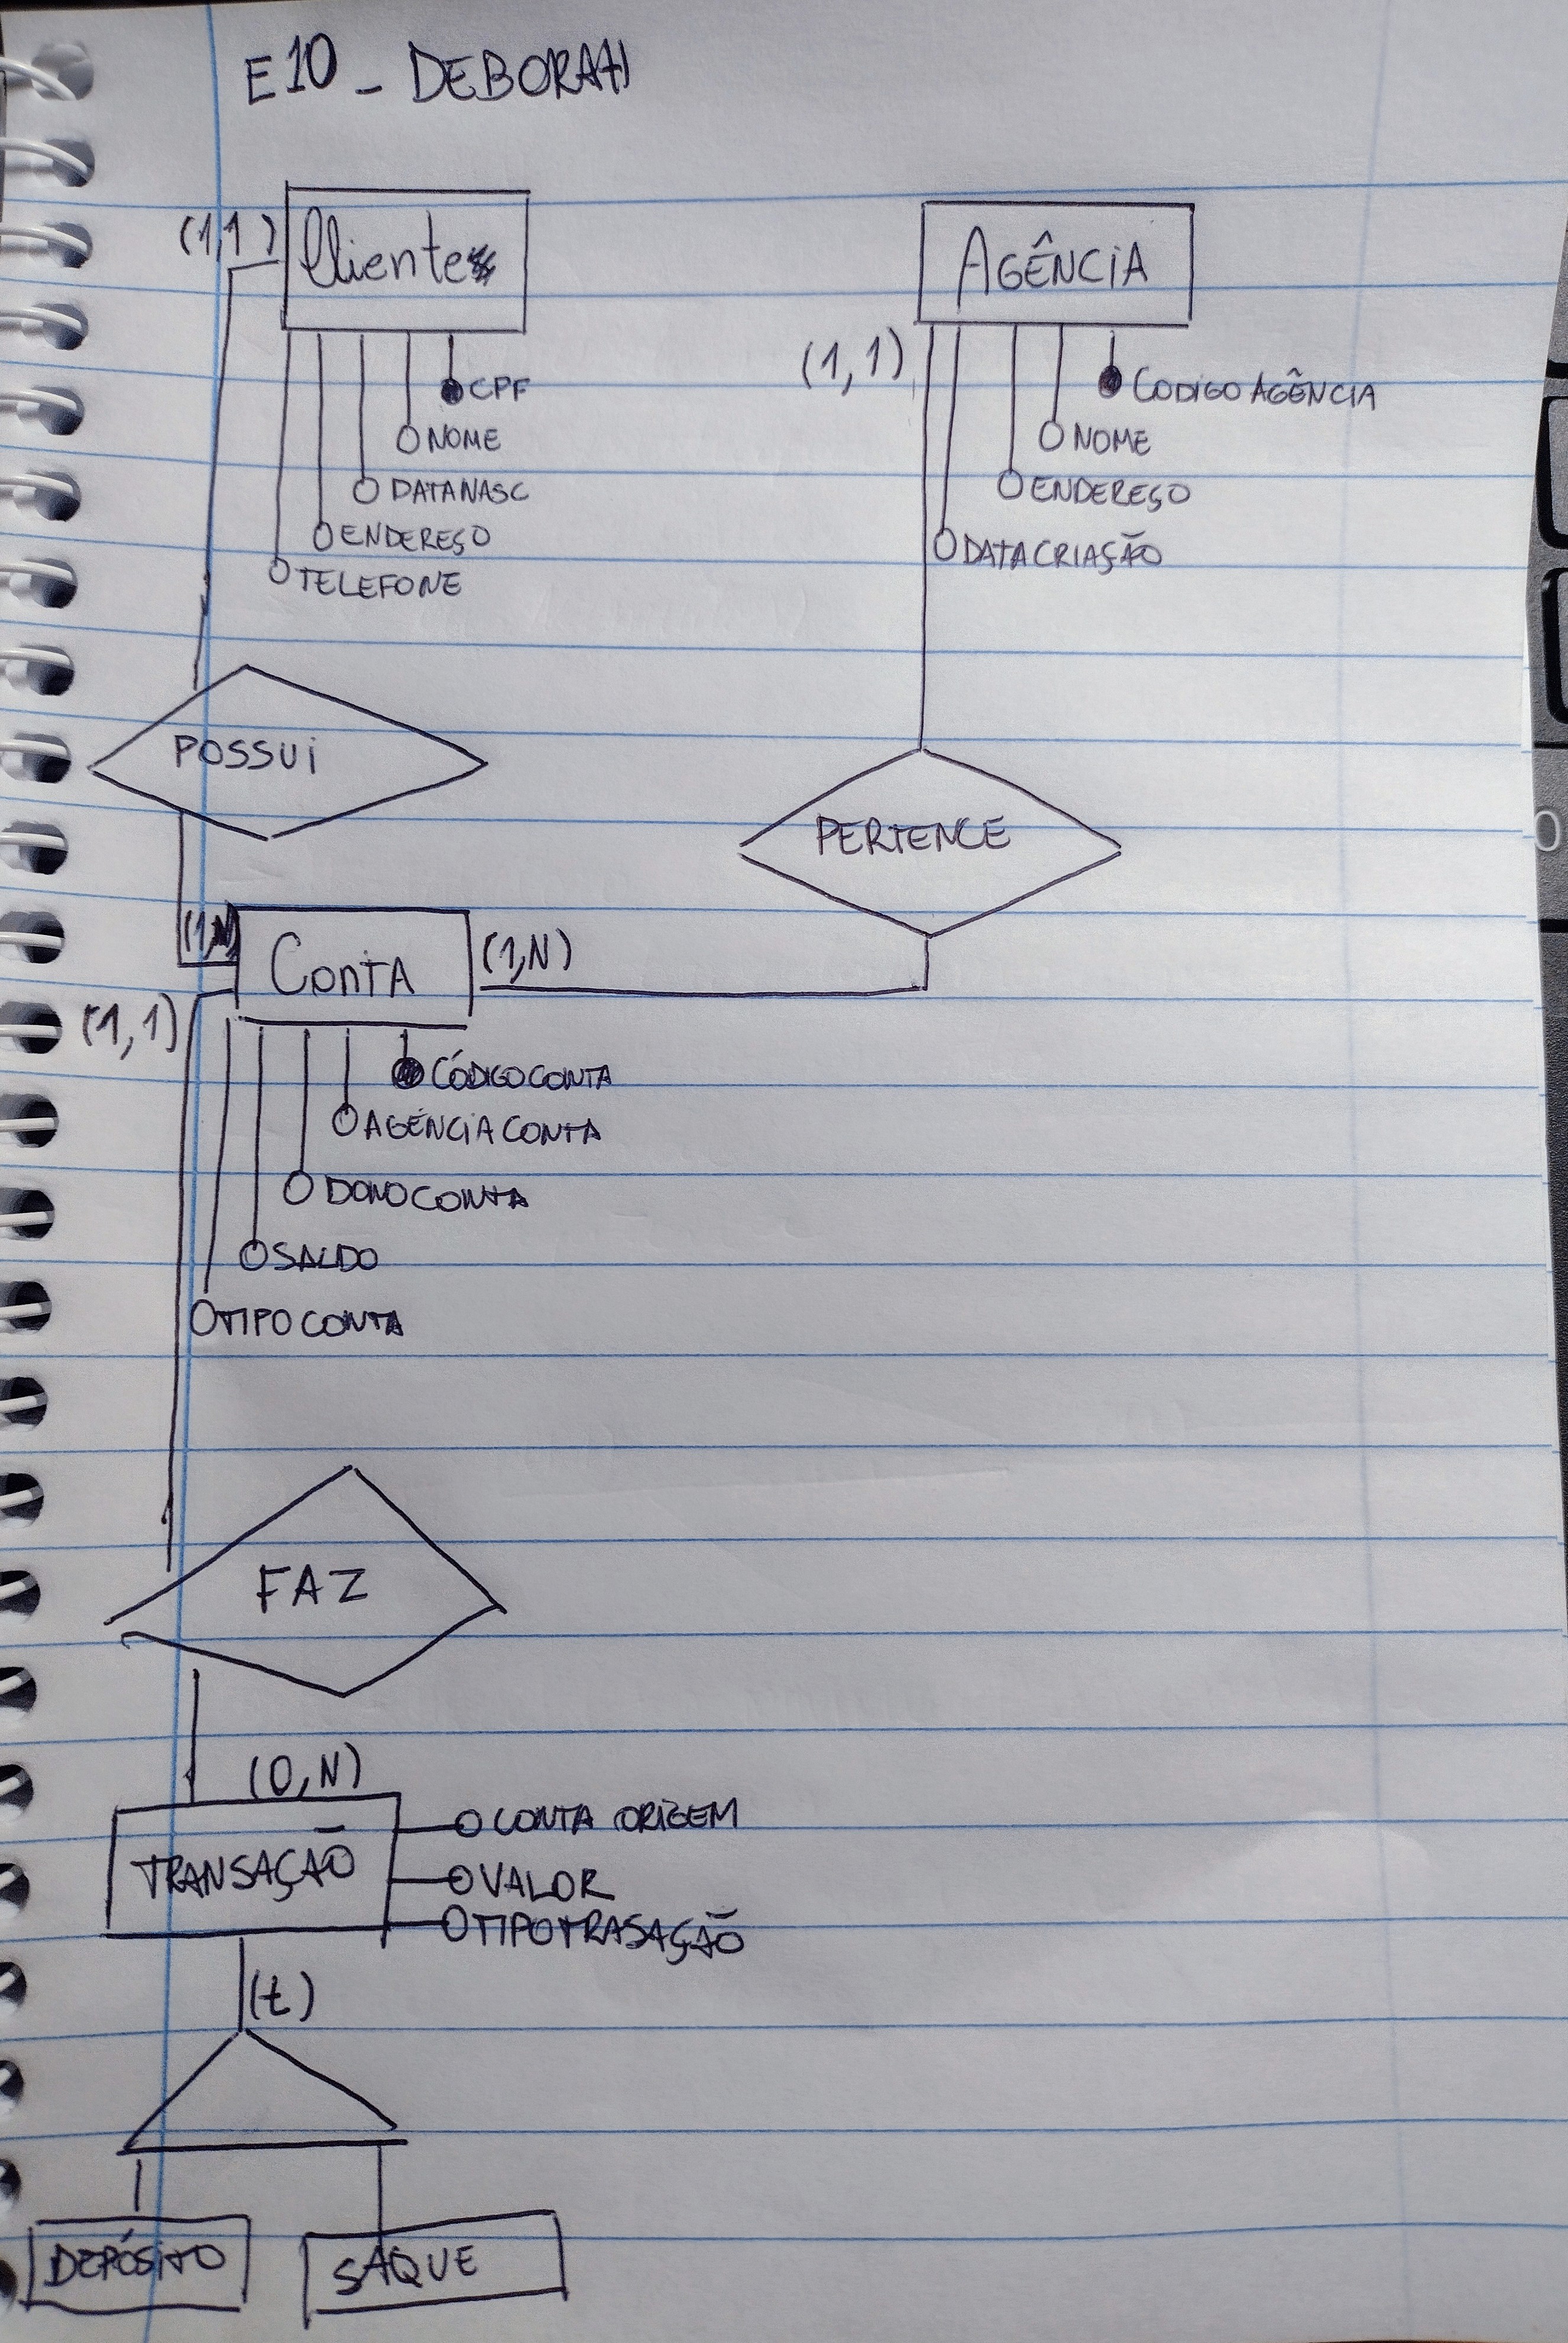 E10 - DEBORAH
(1,1) Cliente
AGÊNCIA
(1,1)
CPF
NOME
DATANASC
ENDEREÇO
TELEFONE
CODIGO AGÊNCIA
NOME
ENDEREÇO
DATACRIAÇÃO
POSSUi
PERTENCE
(1,N) CONTA (1,N)
(1,1)
CÓDIGOCONTA
AGÊNCIACONTA
DONOCONTA
SALDO
TIPOCONTA
FAZ
(0,N)
TRANSAÇÃO
CONTA ORIGEM
VALOR
TIPOTRASAÇÃO
(t)
DEPÓSITO
SAQUE